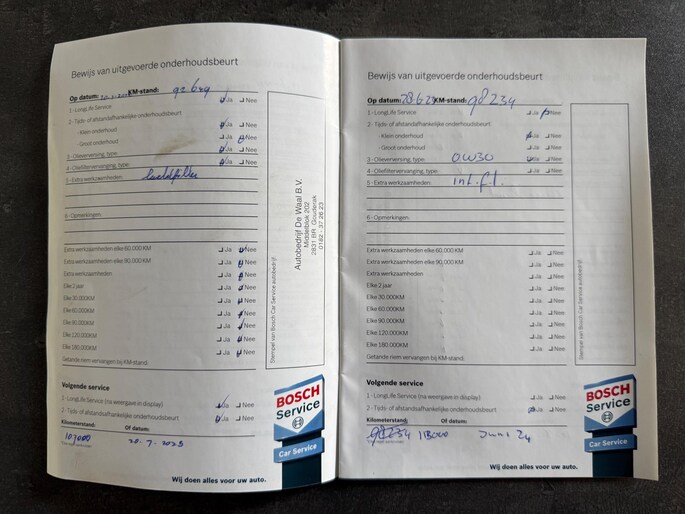 Bewijs van uitgevoerde onderhoudsbeurt
Op datum: KM-stand: 92649
1 - LongLife Service Ja Nee
2 - Tijds- of afstandsafhankelijke onderhoudsbeurt
- Klein onderhoud Ja Nee
- Groot onderhoud Ja Nee
3 - Olieverversing, type: Ja Nee
4 - Oliefiltervervanging, type: Ja Nee
5 - Extra werkzaamheden:
6 - Opmerkingen:
Extra werkzaamheden elke 60.000 KM Ja Nee
Extra werkzaamheden elke 90.000 KM Ja Nee
Extra werkzaamheden Ja Nee
Elke 2 jaar Ja Nee
Elke 30.000KM Ja Nee
Elke 60.000KM Ja Nee
Elke 90.000KM Ja Nee
Elke 120.000KM Ja Nee
Elke 180.000KM Ja Nee
Getande riem vervangen bij KM-stand:
Stempel van Bosch Car Service autobedrijf:
Autobedrijf De Waal B.V.
Middelblok 202
2831 BR Gouderak
0182 - 37 26 23
Volgende service
1 - LongLife Service (na weergave in display) Ja Nee
2 - Tijds- of afstandafhankelijke onderhoudsbeurt Ja Nee
Kilometerstand: Of datum:
107000 20-7-2023
BOSCH
Service
Car Service
Wij doen alles voor uw auto.
Bewijs van uitgevoerde onderhoudsbeurt
Op datum: 28 6 23 KM-stand: 98234
1 - LongLife Service Ja Nee
2 - Tijds- of afstandsafhankelijke onderhoudsbeurt
- Klein onderhoud Ja Nee
- Groot onderhoud Ja Nee
3 - Olieverversing, type: 0W30 Ja Nee
4 - Oliefiltervervanging, type: Ja Nee
5 - Extra werkzaamheden: Int. f.l.
6 - Opmerkingen:
Extra werkzaamheden elke 60.000 KM Ja Nee
Extra werkzaamheden elke 90.000 KM Ja Nee
Extra werkzaamheden Ja Nee
Elke 2 jaar Ja Nee
Elke 30.000KM Ja Nee
Elke 60.000KM Ja Nee
Elke 90.000KM Ja Nee
Elke 120.000KM Ja Nee
Elke 180.000KM Ja Nee
Getande riem vervangen bij KM-stand:
Stempel van Bosch Car Service autobedrijf:
Volgende service
1 - LongLife Service (na weergave in display) Ja Nee
2 - Tijds- of afstandafhankelijke onderhoudsbeurt Ja Nee
Kilometerstand: Of datum:
98234 113000 Juni 24
BOSCH
Service
Car Service
Wij doen alles voor uw auto.